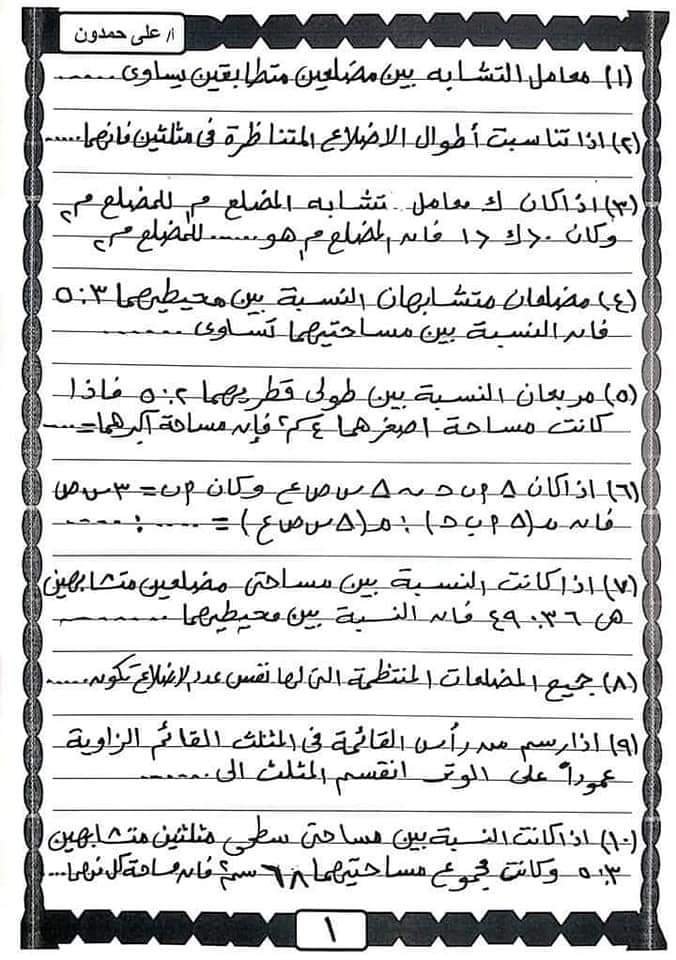 أ/ على حمدون
(١) معامل التشابه بين مضلعين متطابقين يساوى ........
(٢) اذا تناسبت أطوال الاضلاع المتناظرة فى مثلثين فانهما.....
(٣) اذا كان ك معامل تشابه المضلع م١ للمضلع م٢
وكان ٠<ك<١ فان المضلع م١ هو...... للمضلع م٢
(٤) مضلعان متشابهان النسبة بين محيطيهما ٣:٥
فان النسبة بين مساحتيهما تساوى ..........
(٥) مربعان النسبة بين طولى قطريهما ٢:٥ فاذا
كانت مساحة اصغرهما ٤ كم٢ فإن مساحة أكبرهما=.....
(٦) اذا كان Δ ٩ب حـ ~ Δ س ص ع وكان ٩ب = ٣ س ص
فان م(Δ ٩ب حـ) : م(Δ س ص ع) = ...... : ......
(٧) اذا كانت النسبة بين مساحتى مضلعين متشابهين
هى ٣٦:٤٩ فان النسبة بين محيطيهما ............
(٨) جميع المضلعات المنتظمة التى لها نفس عدد الاضلاع تكون.....
(٩) اذا رسم من رأس القائمة فى المثلث القائم الزاوية
عموداً على الوتر انقسم المثلث الى ........
(١٠) اذا كانت النسبة بين مساحتى سطحى مثلثين متشابهين
٣:٥ وكانت مجموع مساحتيهما ٦٨ سم٢ فان مساحة كل منهما...
١